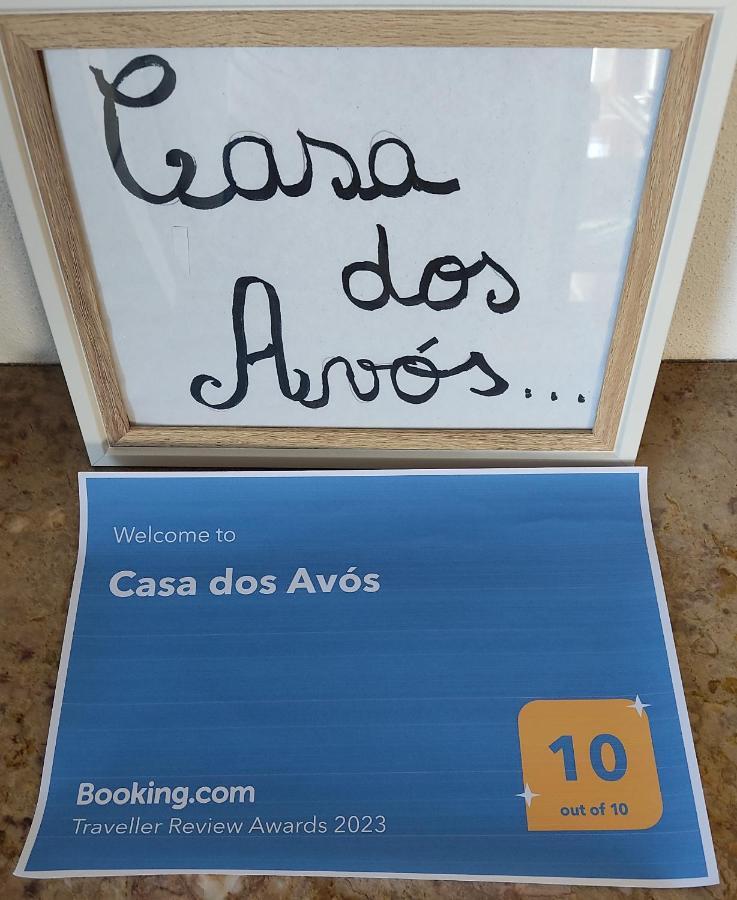 Casa
dos
Avós...
Welcome to
Casa dos Avós
10
out of 10
Booking.com
Traveller Review Awards 2023